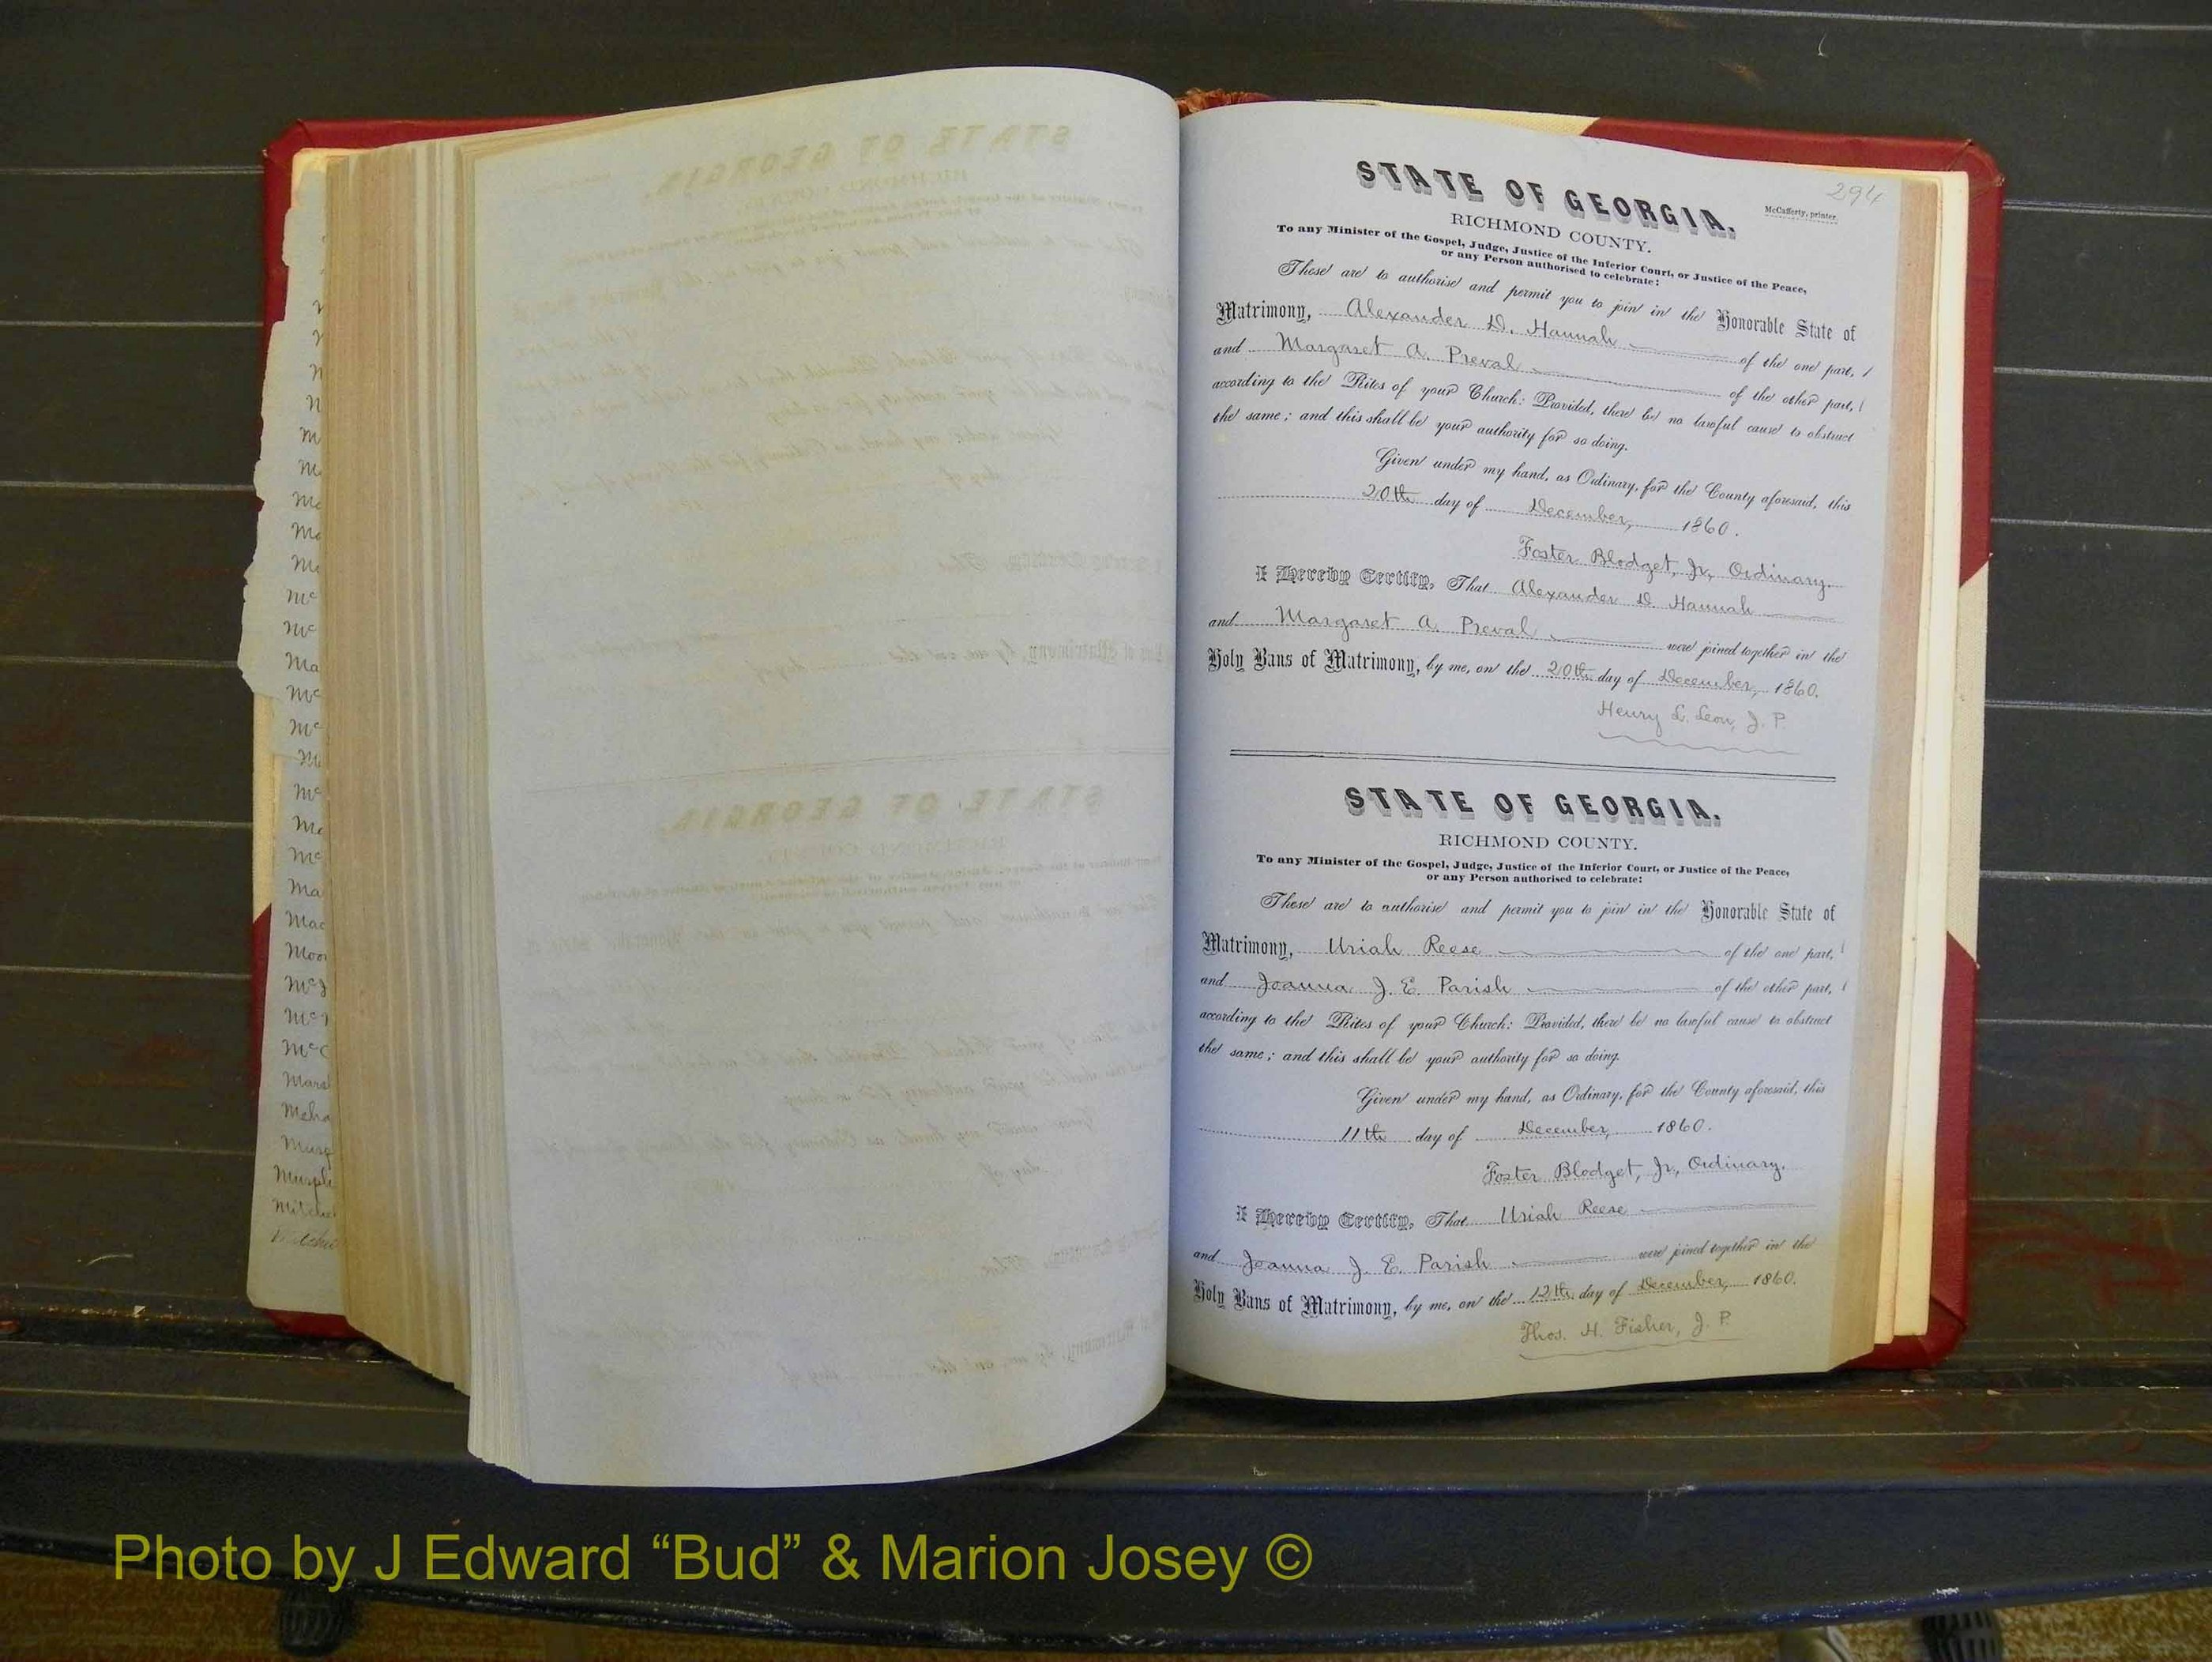 294
STATE OF GEORGIA.
McCafferty, printer.
RICHMOND COUNTY.
To any Minister of the Gospel, Judge, Justice of the Inferior Court, or Justice of the Peace,
or any Person authorised to celebrate:
These are to authorise and permit you to join in the Honorable State of
Matrimony, Alexander D. Hannah of the one part,
and Margaret A. Preval of the other part,
according to the Rites of your Church: Provided, there be no lawful cause to obstruct
the same; and this shall be your authority for so doing.
Given under my hand, as Ordinary, for the County aforesaid, this
20th day of December, 1860.
Foster Blodget, Jr, Ordinary.
I Hereby Certify, That Alexander D. Hannah
and Margaret A. Preval were joined together in the
Holy Bans of Matrimony, by me, on the 20th day of December, 1860.
Henry L. Leon, J. P.
STATE OF GEORGIA.
RICHMOND COUNTY.
To any Minister of the Gospel, Judge, Justice of the Inferior Court, or Justice of the Peace,
or any Person authorised to celebrate:
These are to authorise and permit you to join in the Honorable State of
Matrimony, Uriah Reese of the one part,
and Joanna J. E. Parish of the other part,
according to the Rites of your Church: Provided, there be no lawful cause to obstruct
the same; and this shall be your authority for so doing.
Given under my hand, as Ordinary, for the County aforesaid, this
11th day of December, 1860.
Foster Blodget, Jr, Ordinary.
I Hereby Certify, That Uriah Reese
and Joanna J. E. Parish were joined together in the
Holy Bans of Matrimony, by me, on the 12th day of December, 1860.
Thos. H. Fisher, J. P.
Photo by J Edward “Bud” & Marion Josey ©